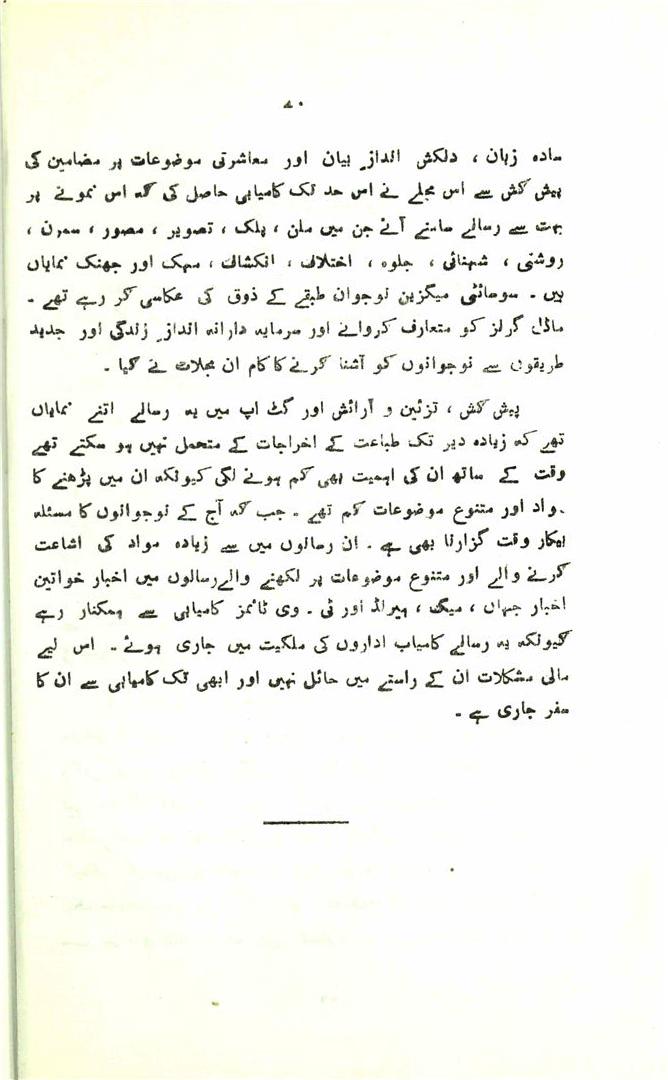 ۷۰
سادہ زبان ، دلکش اندازِ بیان اور معاشرتی موضوعات پر مضامین کی
پیش کش سے اس مجلے نے اس حد تک کامیابی حاصل کی کہ اس نمونے پر
بہت سے رسالے سامنے آئے جن میں ملن ، پلک ، تصویر ، مصور ، سمرن ،
روشنی ، شہنائی ، جلوہ ، اختلاف ، انکشاف ، مہک اور جھنک نمایاں
ہیں ۔ سوسائٹی میگزین نوجوان طبقے کے ذوق کی عکاسی کر رہے تھے ۔
ماڈل گرلز کو متعارف کروانے اور سرمایہ دارانہ اندازِ زندگی اور جدید
طریقوں سے نوجوانوں کو آشنا کرنے کا کام ان مجلات نے کیا ۔
پیش کش ، تزئین و آرائش اور گٹ اپ میں یہ رسالے اتنے نمایاں
تھے کہ زیادہ دیر تک طباعت کے اخراجات کے متحمل نہیں ہو سکتے تھے
وقت کے ساتھ ان کی اہمیت بھی کم ہونے لگی کیونکہ ان میں پڑھنے کا
مواد اور متنوع موضوعات کم تھے ۔ جب کہ آج کے نوجوانوں کا مسئلہ
بیکار وقت گزارنا بھی ہے ۔ ان رسالوں میں سے زیادہ مواد کی اشاعت
کرنے والے اور متنوع موضوعات پر لکھنے والے رسالوں میں اخبار خواتین
اخبار جہاں ، میگ ، ہیرالڈ اور ٹی ۔ وی ٹائمز کامیابی سے ہمکنار رہے
کیونکہ یہ رسالے کامیاب اداروں کی ملکیت میں جاری ہوئے ۔ اس لیے
مالی مشکلات ان کے راستے میں حائل نہیں اور ابھی تک کامیابی سے ان کا
سفر جاری ہے ۔